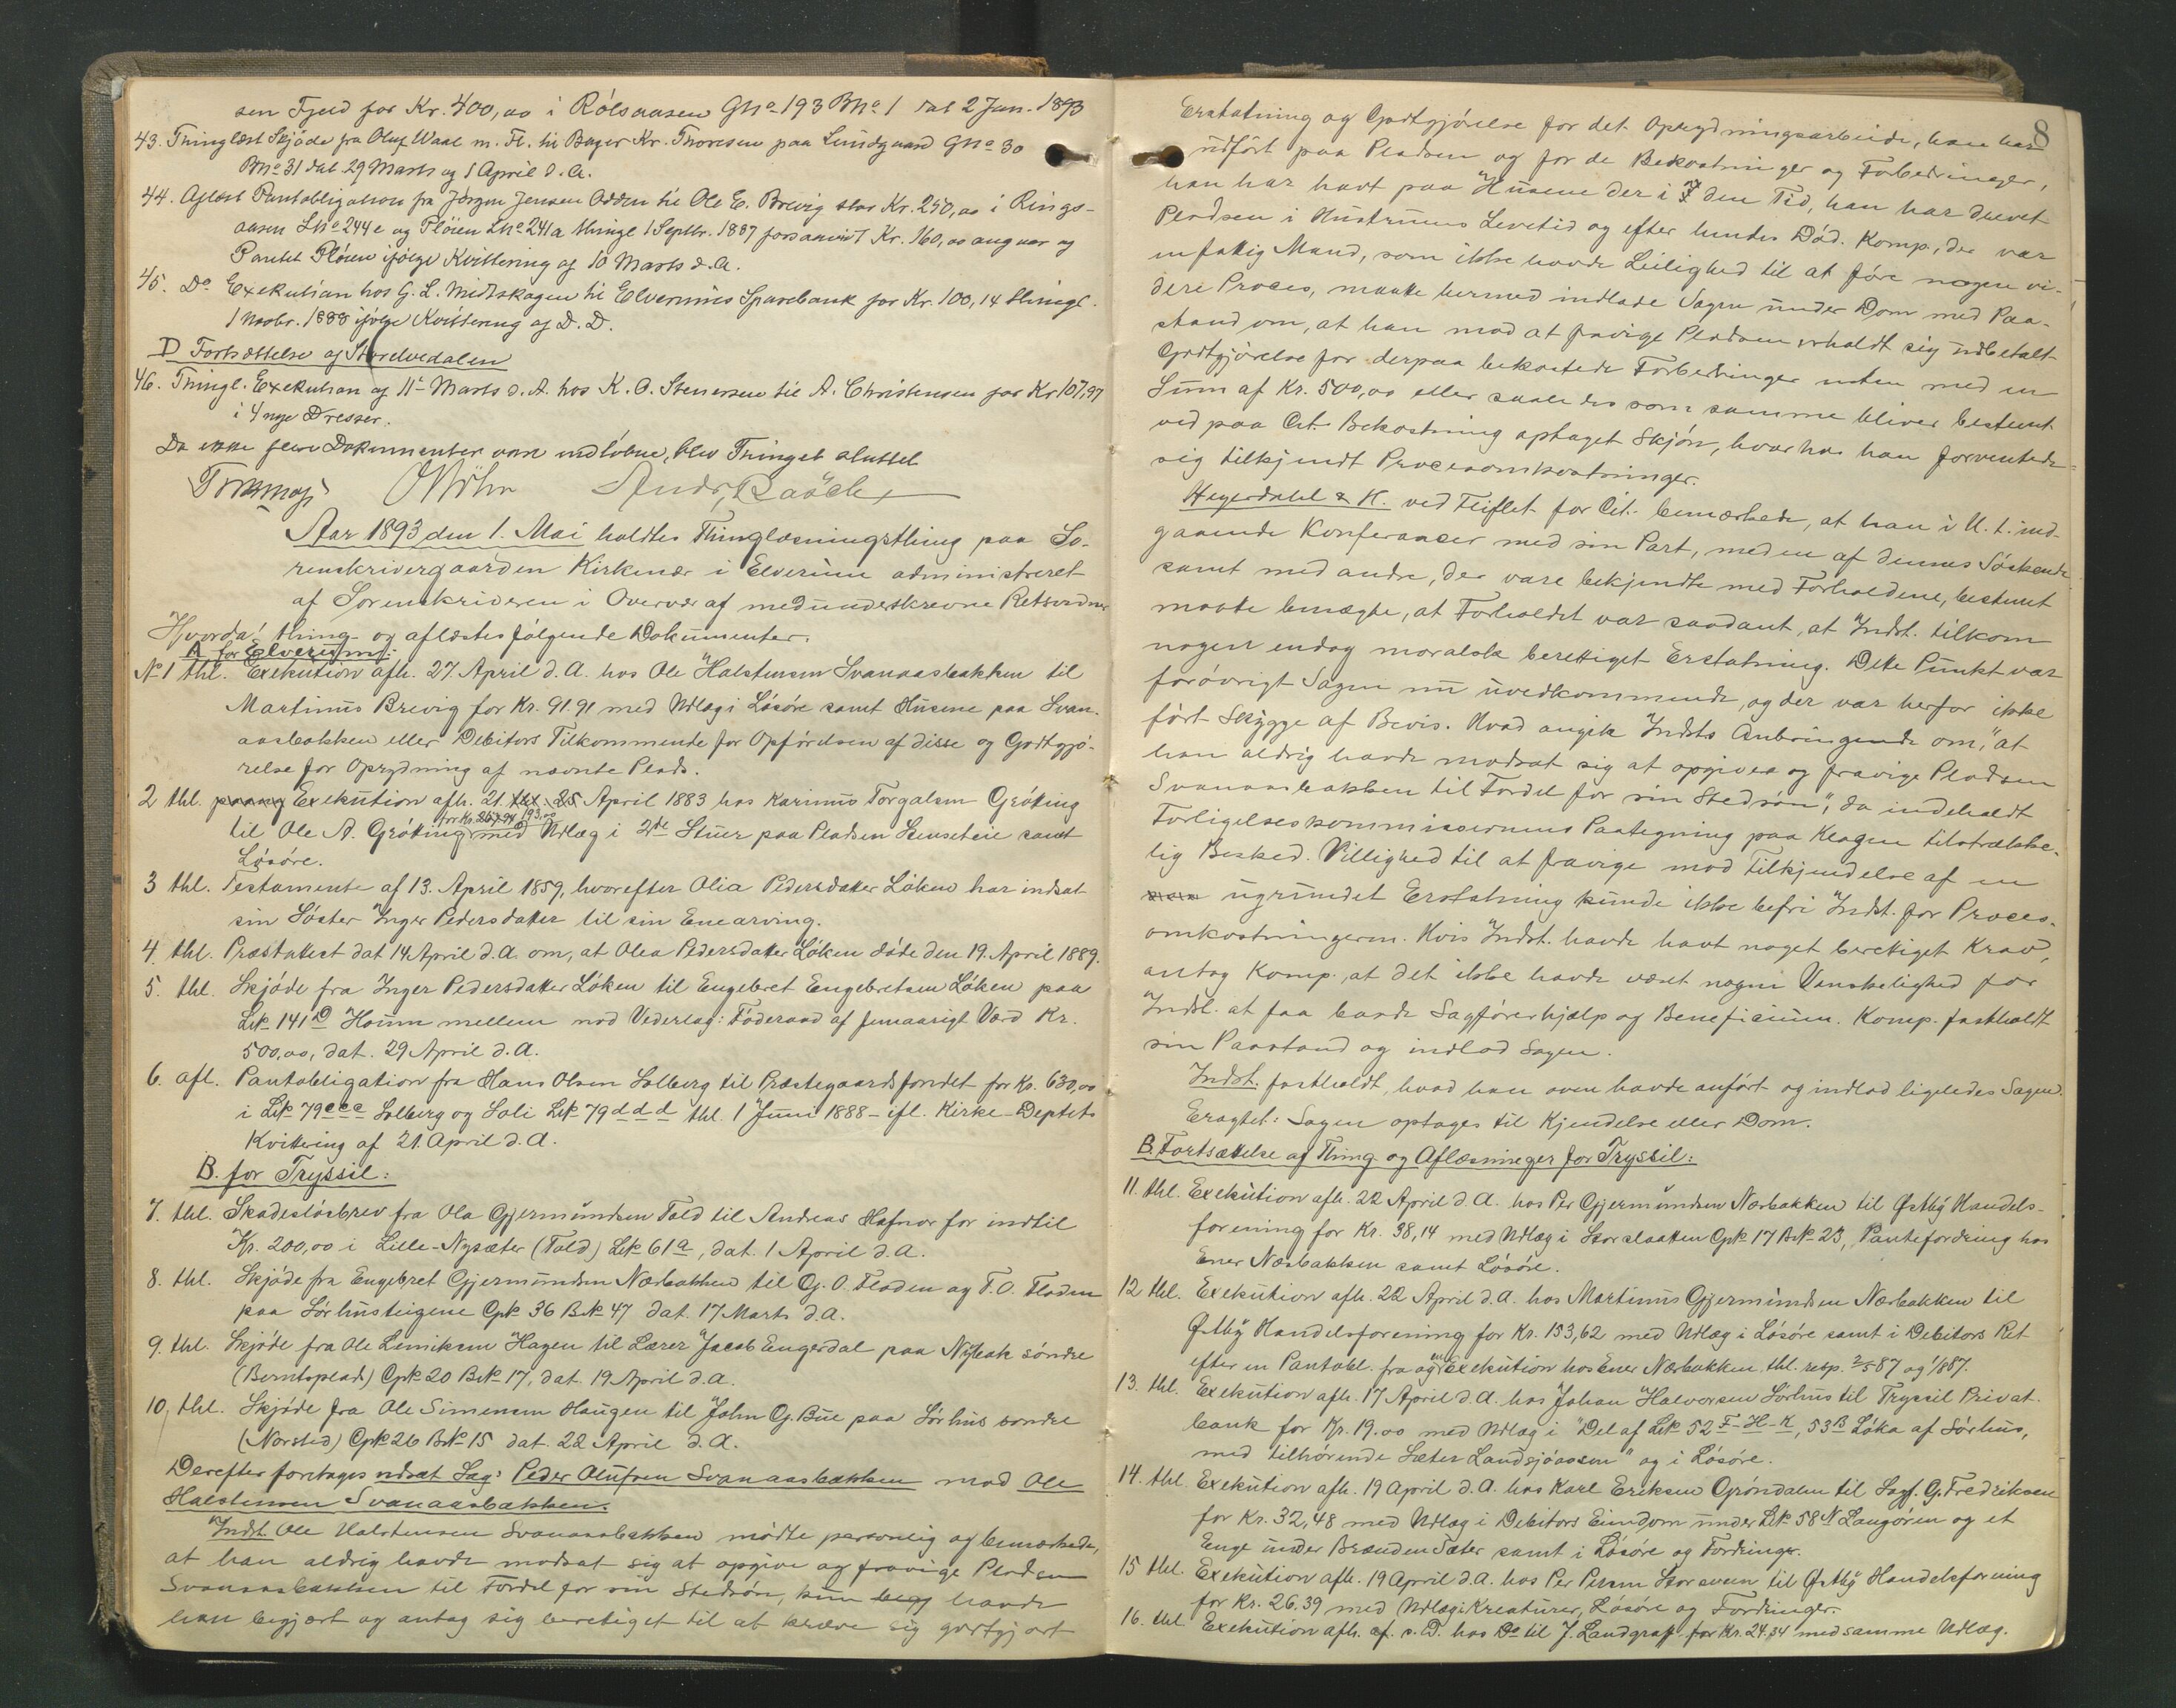 sen Fjeld for Kr. 400,00 i Rölsaasen GNo 193 BNo 1 dat 2 Jan. 1893
43. Thinglæst Skjöde fra Oluf Waal m. Fl. til Bager Kr. Thoresen paa Lundgaard GNo 30
BNo 31 dat. 29 Marts og 1 April d. A.
44. Aflæst Pantobligation fra Jörgen Jensen Odden til Ole E. Brevig stor Kr. 250,00 i Rings-
aasen LNo 244e og Plöien LNo 241a thingl 1 Septbr. 1887 forsaavidt Kr. 160,00 angaar og
Pantet Plöien ifölge Kvittering af 10 Marts d. A.
45. Do Exekution hos G. L. Midtskogen til Elverums Sparebank for Kr. 100,14 thingl.
1 Novbr. 1888 ifölge Kvittering af D. D.
D Fortsættelse af Storelvedalen
46. Thingl. Exekution af 11te Marts d. A. hos K. O. Stenersen til A. Christensen for Kr 107,97
i 4 nye Dresser.
Da ikke flere Dokumenter vare indlöbne, blev Thinget sluttet
OMöhn Andr, Raöck
Aar 1893 den 1. Mai holdtes Thinglæsningsthing paa So-
renskrivergaarden Kirkenær i Elverum administreret
af Sorenskriveren i Overvær af medunderskrevne Retsvidner
Hvorda! thing- og aflæstes fölgende Dokumenter.
A for Elverum:
No 1 thl. Exekution afh. 27 April d. A. hos Ole Halstensen Svanaasbakken til
Martinus Brevig for Kr. 91.91 med Udlæg i Lösöre samt Husene paa Svan-
aasbakken eller Debitors Tilkommende for Opförelsen af disse og Godtgjö-
relse for Oprydning af nævnte Plads.
2 thl. Exekution afh. 21 April 1883 hos Karinus Torgalsen Gröting
for Kr. 193,00
til Ole A. Gröting med Udlæg i 2de Stuer paa Pladsen Stenseteie samt
Lösöre.
3 thl. Testamente af 13. April 1859, hvorefter Olia Pedersdatter Löken har indsat
sin Söster Inger Pedersdatter til sin Enearving.
4 thl. Præstattest dat 14 April d. A. om, at Olea Pedersdatter Löken döde den 19. April 1889.
5. thl. Skjöde fra Inger Pedersdatter Löken til Engebret Engebretsen Löken paa
LNo 141D Hounn mellem mod Vederlag: Föderaad af femaarigt Værd Kr.
500,00, dat. 29 April d. A.
6. afl. Pantobligation fra Hans Olsen Solberg til Præstegaardsfondet for Kr. 630,00
i LNo 79eee Solberg og Soli LNo 79ddd thl. 1 Juni 1888 - ifl. Kirke-Deptets
Kvittering af 21. April d. A.
B. for Tryssil:
7. thl. Skadeslösbrev fra Ola Gjermundsen Told til Andreas Hafnor for indtil
Kr. 200,00 i Lille-Nysæter (Told) LNo 61a, dat. 1 April d. A.
8. thl. Skjöde fra Engebret Gjermundsen Næsbakken til G. O. Floden og T. O. Floden
paa Sörhusteigene GNo 36 BNo 47 dat. 17 Marts d. A.
9. thl. Skjöde fra Ole Liniksen Hagen til Lærer Jacob Engerdal paa Nybak söndre
(Berntsplads) GNo 20 BNo 17, dat. 19 April d. A.
10, thl. Skjöde fra Ole Simensen Haugen til John G. Bue paa Sörhus söndre
(Norsted) GNo 26 BNo 15 dat. 22 April d. A.
Derefter foretages udsat Sag: Peder Olufsen Svanaasbakken mod Ole
Halstensen Svanaasbakken.
Indst. Ole Halstensen Svanaasbakken mödte personlig og bemærkede,
at han aldrig havde modsat sig at opgive og fravige Pladsen
Svanaasbakken til Fordel for sin Stedsön, havde
han begjært og antog sig berettiget til at kræve sig godtgjort
8
Erstatning og Godtgjörelse for det Oprydningsarbeide, han har
udfört paa Pladsen og for de Bekostninger og Forbedringer,
han har havt paa Husene der i den Tid, han har drevet
Pladsen i Hustruens Levetid og efter hendes Död. Komp., der var
en fattig Mand, som ikke havde Leilighed til at före nogen vi-
dere Proces, maatte hermed indlade Sagen under Dom med Paa-
stand om, at han mod at fravige Pladsen erholdt sig udbetalt
Godtgjörelse for derpaa bekostede Forbedringer enten med en
Sum af Kr. 500,00 eller saaledes som samme bliver bestemt
ved paa Cit. Bekostning optaget Skjön, hvorhos han forventede
sig tilkjendt Procesomkostninger.
Heyerdahl & H. ved Feiflet for Cit. bemærkede, at han i H. t. ind-
gaaende Konferancer med sin Part, med en af dennes Söskende
samt med andre, der vare bekjendte med Forholdene, bestemt
maatte benægte, at Forholdet var saadant, at Indst. tilkom
nogen endog moralsk berettiget Erstatning. Dette Punkt var
forövrigt Sagen nu uvedkommende, og der var herfor ikke
fört Skygge af Bevis. Hvad angik Indsts Anbringende om, "at
han aldrig havde modsat sig at opgives og fravige Pladsen
Svanaasbakken til Fordel for sin Stedsön", da indeholdt
Forligelseskommissærenes Paategning paa Klagen tilstrække-
lig Besked. Villighed til at fravige mod Tilkjendelse af en
ugrundet Erstatning kunde ikke befri Indst. for Proces-
omkostningerne. Hvis Indst. havde havt noget berettiget Krav,
antog Komp., at det ikke havde været nogen Vanskelighed for
Indst. at faa baade Sagförerhjælp og Beneficium. Komp. fastholdt
sin Paastand og indlod Sagen.
Indst. fastholdt, hvad han oven havde anfört og indlod ligeledes Sagen.
Eragtet: Sagen optages til Kjendelse eller Dom.
B. Fortsættelse af Thing- og Aflæsninger for Tryssil:
11. thl. Exekution afh. 22 April d. A. hos Per Gjermundsen Næsbakken til Östby Handels-
forening for Kr. 38,14 med Udlæg i Storslaatten GNo 17 BNo 23, Pantefordring hos
Ener Næsbakken samt Lösöre.
12 thl. Exekution afh. 22 April d. A. hos Martinus Gjermundsen Næsbakken til
Östby Handelsforening for Kr. 153,62 med Udlæg i Lösöre samt i Debitors Ret
efter en Pantobl. fra og en Exekution hos Ener Næsbakken thl. resp. 2/5 87 og 1/887.
13. thl. Exekution afh. 17 April d. A. hos Johan Halvorsen Sörhus til Tryssil Privat-
bank for Kr. 19.00 med Udlæg i "Del af LNo 52 F-H-K, 53B Löka af Sörhus,
med tilhörende Sæter Landsjöaasen" og i Lösöre.
14. thl. Exekution afh. 19 April d. A. hos Karl Eriksen Gröndalen til Sagf. G. Fredriksen
for Kr. 32,48 med Udlæg i Debitors Eiendom under LNo 58N Langören og et
Enge under Brænden Sæter samt i Lösöre og Fordringer.
15 thl. Exekution afh. 19 April d. A. hos Per Persen Storsveen til Östby Handelsforening
for Kr. 26.39 med Udlæg i Kreaturer, Lösöre og Fordringer.
16. thl. Exekution afh. af. s. D. hos Do til J. Landgraff for Kr. 24.34 med samme Udlæg.